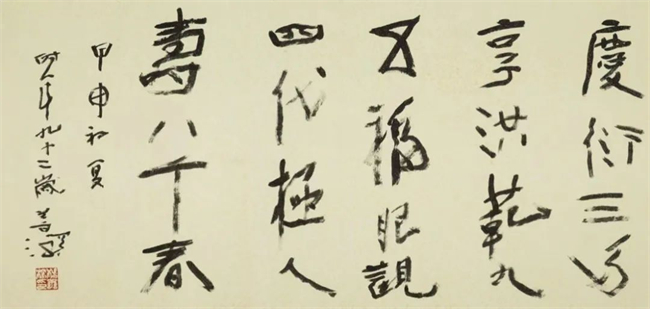 慶衍三多
享洪範九
五福眼觀
四代極人
壽八千春
甲申初夏
時年九十二歲善深